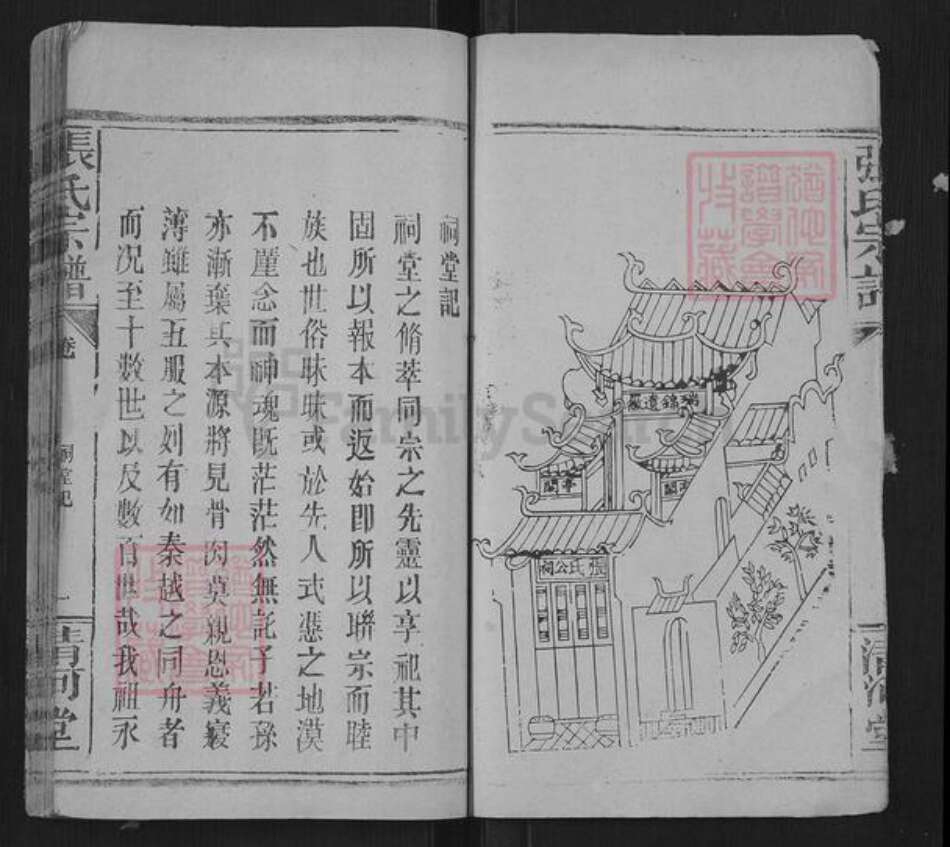 張氏宗譜
清河堂
瑞錦遺徽
亭閣
亭閣
張氏公祠
祠堂記
祠堂之脩萃同宗之先靈以享祀其中
固所以報本而返始即所以聯宗而睦
族也世俗昧昧或於先人式憑之地漠
不厪念而神魂既茫茫然無託子若孫
亦漸棄其本源將見骨肉莫親恩義寖
薄雖屬五服之列有如秦越之同舟者
而况至十數世以及數百世哉我祖永
張氏宗譜
卷
祠堂記
一
清河堂
FamilySearch